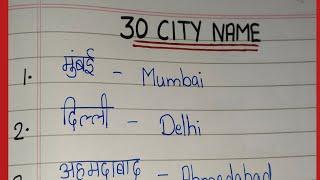 30 CITY NAME
1. मुंबई - Mumbai
2. दिल्ली - Delhi
अहमदाबाद - Ahmedabad